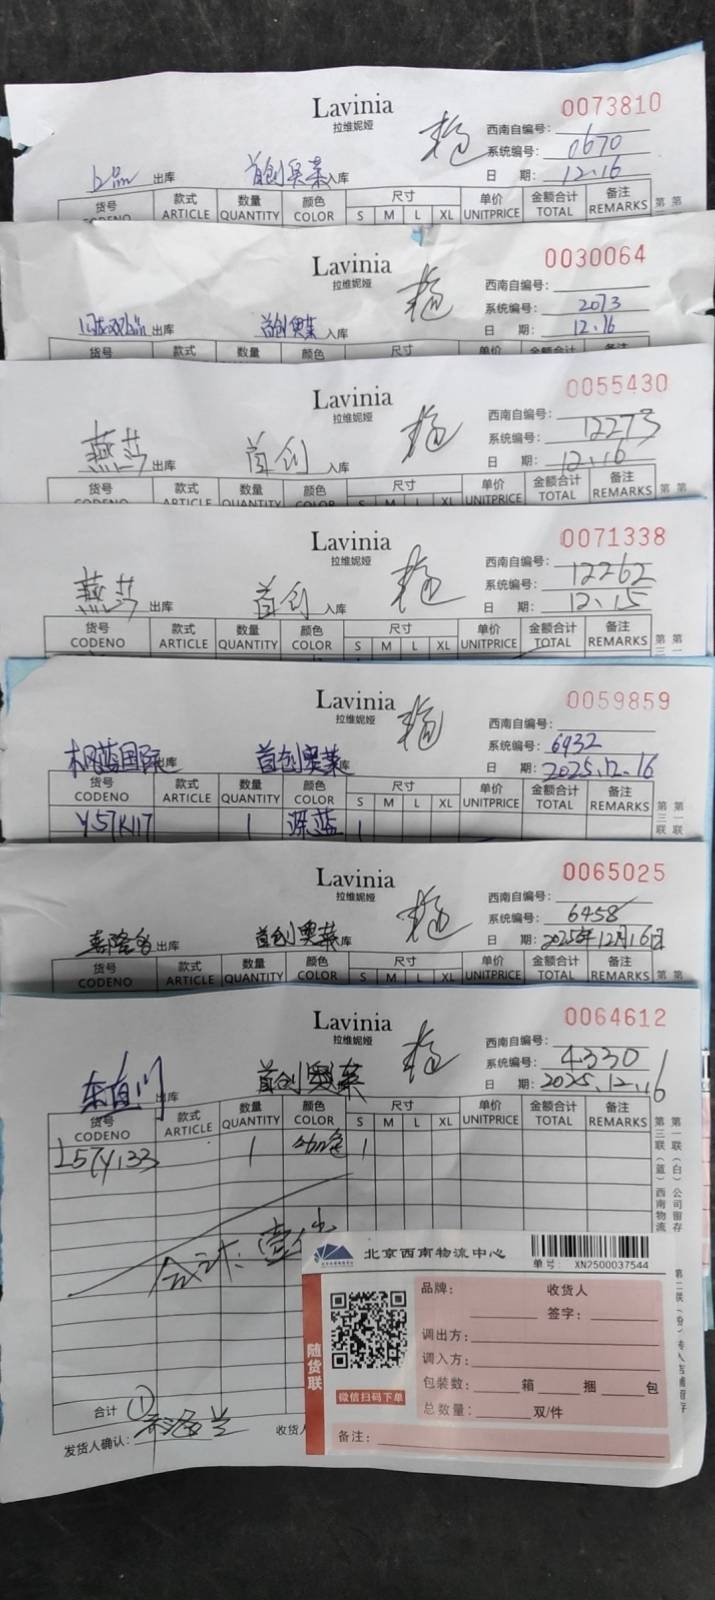 Lavinia 0073810
拉维妮娅 西南自编号:
系统编号: 0670
上品 出库 首创奥莱 入库 日 期: 12.16
货号 款式 数量 颜色 尺寸 单价 金额合计 备注
CODENO ARTICLE QUANTITY COLOR S M L XL UNITPRICE TOTAL REMARKS
Lavinia 0030064
拉维妮娅 西南自编号:
系统编号: 2073
出库 首创奥莱 入库 日 期: 12.16
货号 款式 数量 颜色 尺寸 单价 金额合计 备注
Lavinia 0055430
拉维妮娅 西南自编号:
系统编号: 12273
燕莎 出库 首创 入库 日 期: 12.16
货号 款式 数量 颜色 尺寸 单价 金额合计 备注
CODENO ARTICLE QUANTITY COLOR S M L XL UNITPRICE TOTAL REMARKS
Lavinia 0071338
拉维妮娅 西南自编号:
系统编号: 12262
燕莎 出库 首创 入库 日 期: 12.15
货号 款式 数量 颜色 尺寸 单价 金额合计 备注
CODENO ARTICLE QUANTITY COLOR S M L XL UNITPRICE TOTAL REMARKS
Lavinia 0059859
拉维妮娅 西南自编号:
系统编号: 6932
枫蓝国际 出库 首创奥莱 入库 日 期: 2025.12.16
货号 款式 数量 颜色 尺寸 单价 金额合计 备注
CODENO ARTICLE QUANTITY COLOR S M L XL UNITPRICE TOTAL REMARKS
Y57K117 1 深蓝 1
Lavinia 0065025
拉维妮娅 西南自编号:
系统编号: 6458
喜隆多 出库 首创奥莱 入库 日 期: 2025年12月16日
货号 款式 数量 颜色 尺寸 单价 金额合计 备注
CODENO ARTICLE QUANTITY COLOR S M L XL UNITPRICE TOTAL REMARKS
Lavinia 0064612
拉维妮娅 西南自编号:
系统编号: 4330
东直门 出库 首创奥莱 日 期: 2025.12.16
货号 款式 数量 颜色 尺寸 单价 金额合计 备注
CODENO ARTICLE QUANTITY COLOR S M L XL UNITPRICE TOTAL REMARKS
L57Y133 1 咖色 1
合计: 壹件
第一联(白)公司留存
第三联(蓝)西南物流
北京西南物流中心
单号: XN2500037544
随货联
微信扫码下单
品牌: 收货人
签字:
调出方:
调入方:
包装数: 箱 捆 包
总数量: 双/件
备注:
合计 ①
发货人确认: 收货人